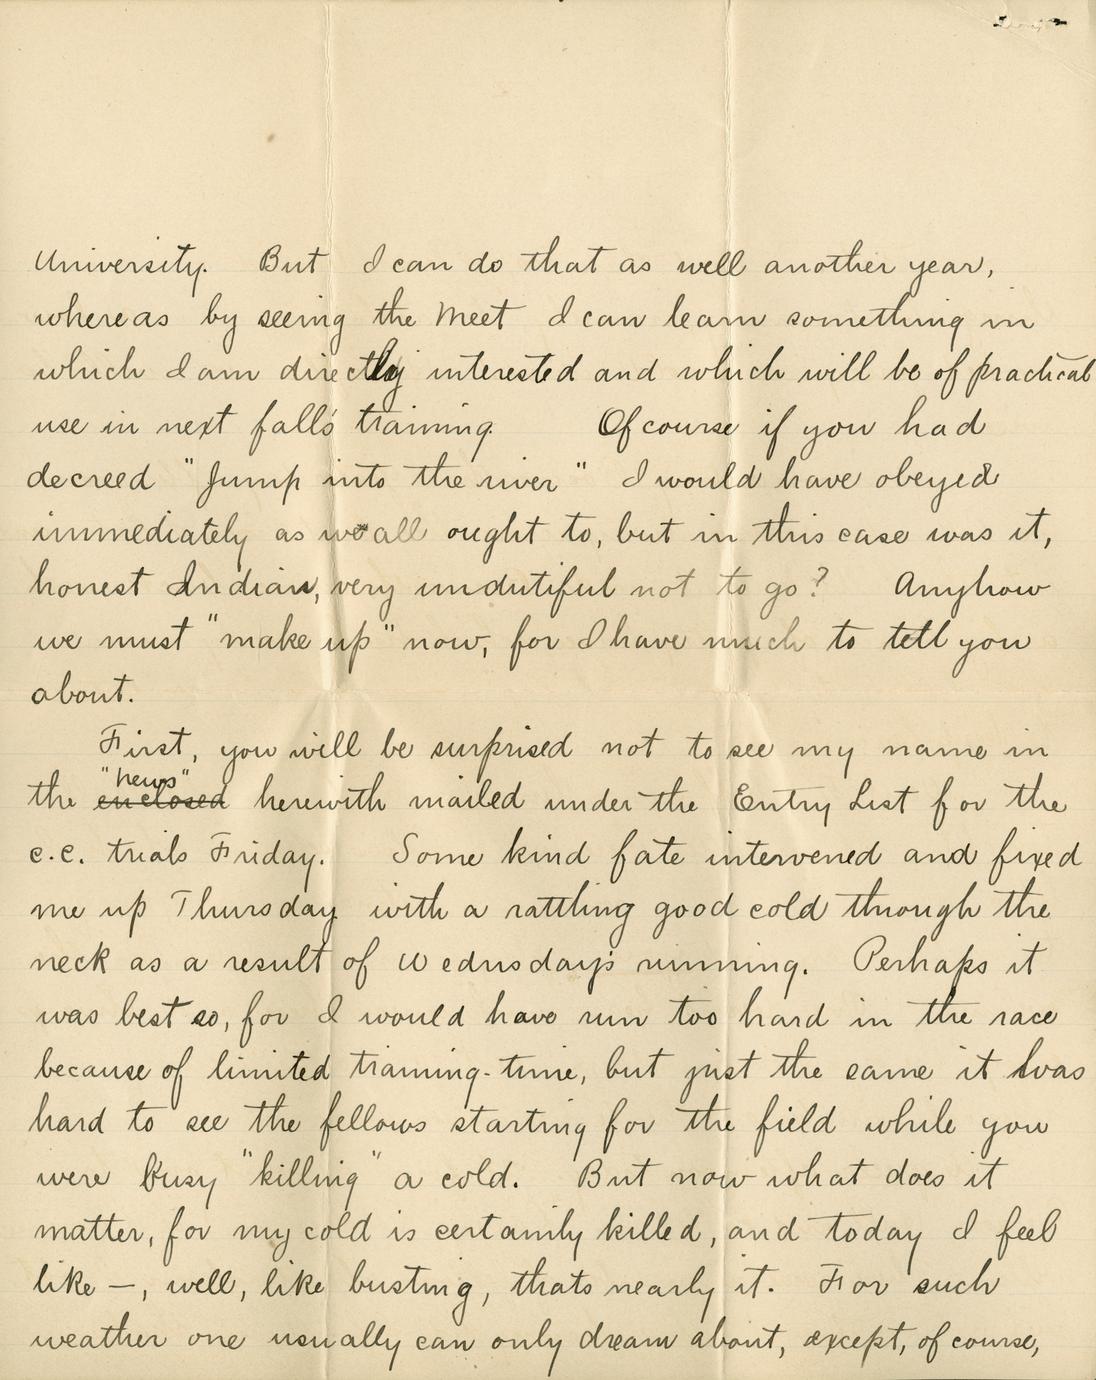 University. But I can do that as well another year,
whereas by seeing the meet I can learn something in
which I am directly interested and which will be of practical
use in next fall's training. Of course if you had
decreed "Jump into the river" I would have obeyed
immediately as we all ought to, but in this case was it,
honest Indian, very undutiful not to go? Anyhow
we must "make up" now, for I have much to tell you
about.
First, you will be surprised not to see my name in
"news"
the enclosed herewith mailed under the Entry List for the
c.c. trials Friday. Some kind fate intervened and fixed
me up Thursday with a rattling good cold through the
neck as a result of Wednsday's running. Perhaps it
was best so, for I would have run too hard in the race
because of limited training-time, but just the same it was
hard to see the fellows starting for the field while you
were busy "killing" a cold. But now what does it
matter, for my cold is certainly killed, and today I feel
like —, well, like busting, thats nearly it. For such
weather one usually can only dream about, except, of course,